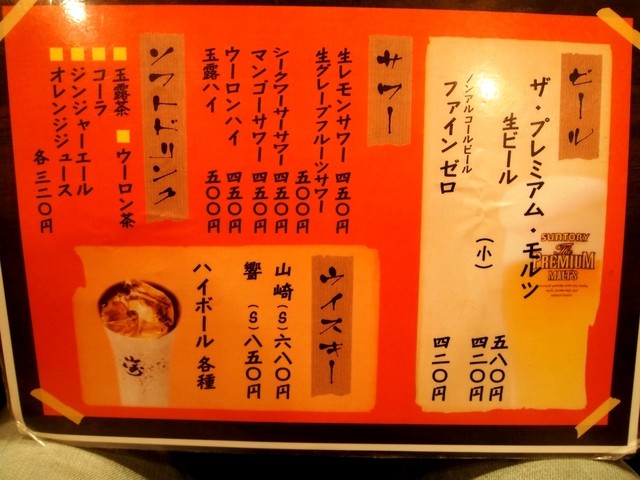 ビール
ザ・プレミアム・モルツ
生ビール 五八〇円
（小） 四二〇円
ノンアルコールビール
ファインゼロ 四二〇円
SUNTORY
The
PREMIUM
MALT'S
サワー
生レモンサワー 四五〇円
生グレープフルーツサワー 五〇〇円
シークワーサーサワー 四五〇円
マンゴーサワー 四五〇円
ウーロンハイ 四五〇円
玉露ハイ 五〇〇円
ソフトドリンク
玉露茶 ウーロン茶
コーラ
ジンジャーエール
オレンジジュース
各三二〇円
ウイスキー
山崎（S）六八〇円
響（S）八五〇円
ハイボール各種